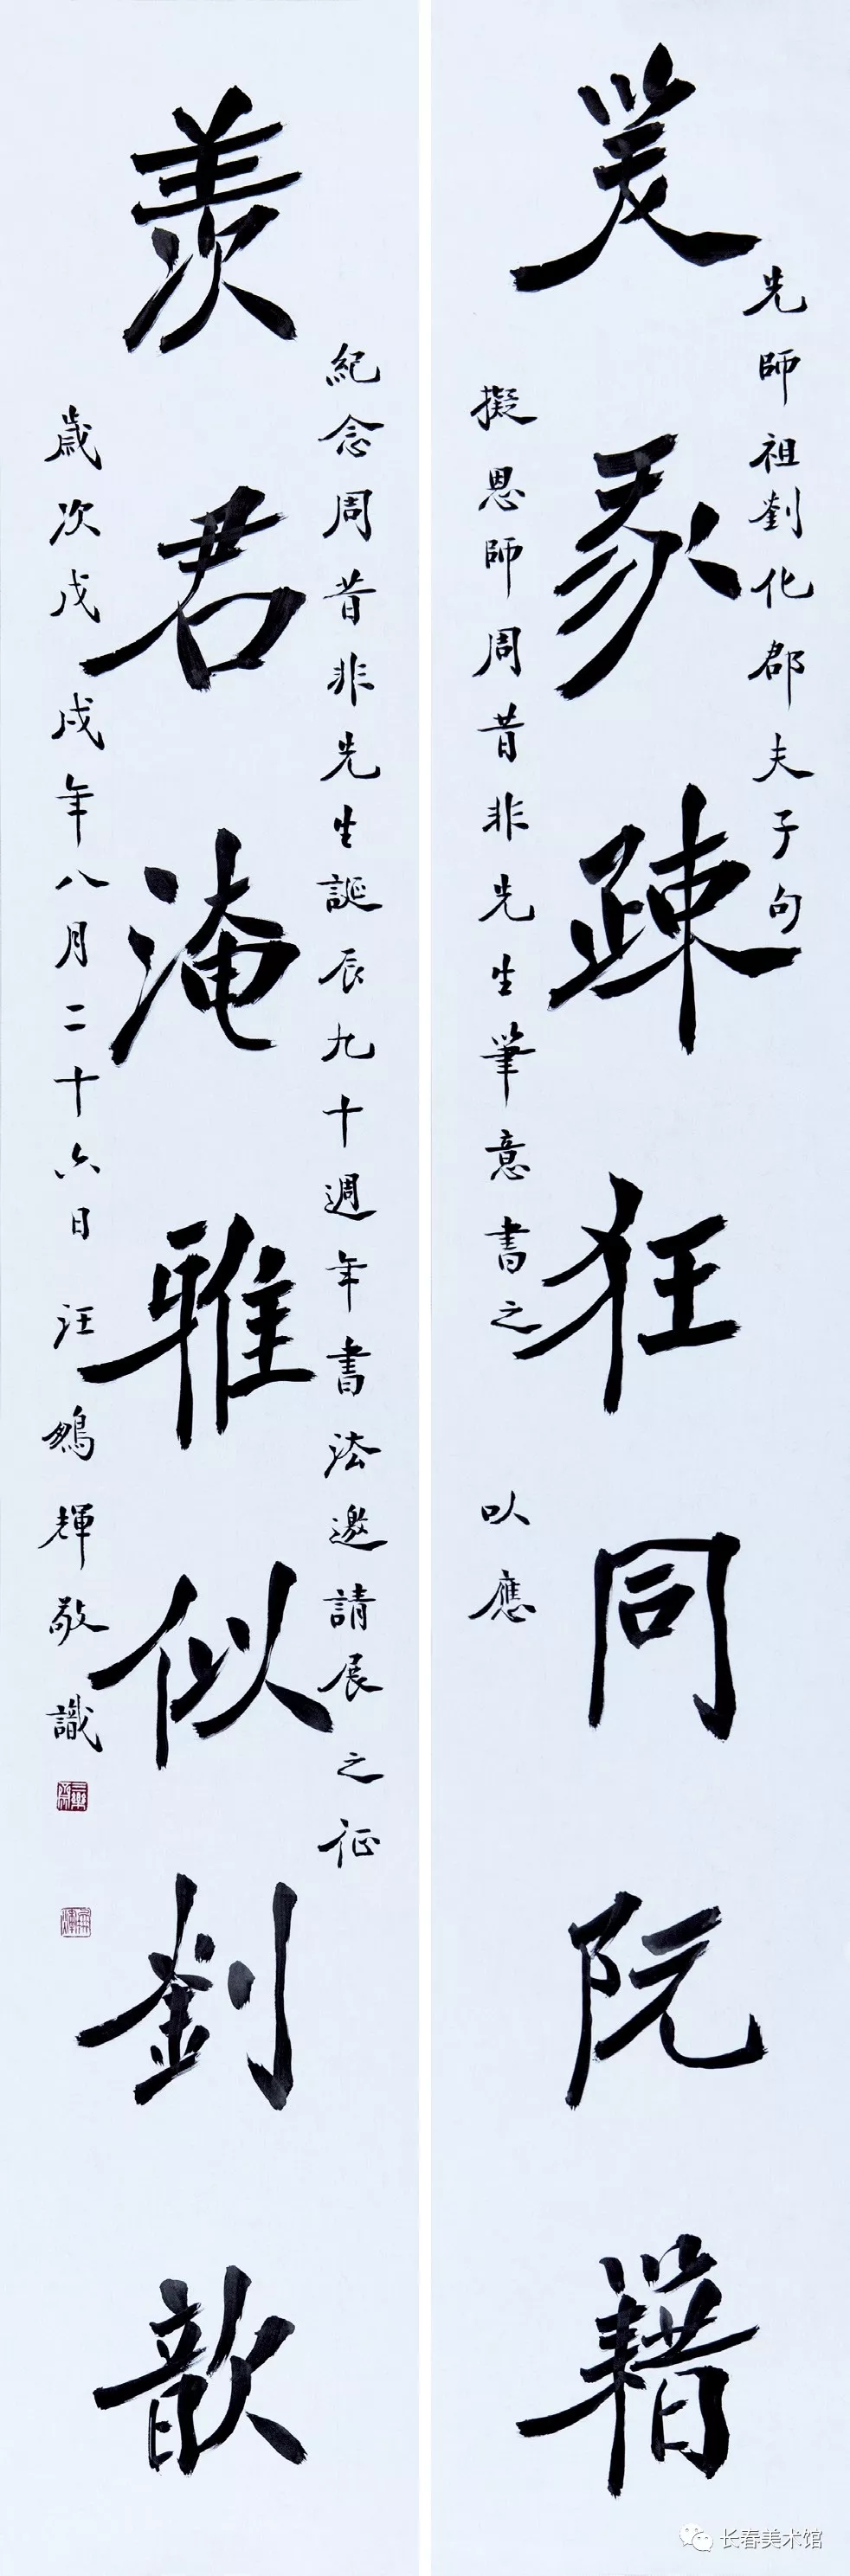 笑我疎狂同阮籍
先師祖劉化郡夫子句
擬恩師周昔非先生筆意書之 以應
羨君淹雅似劉歆
紀念周昔非先生誕辰九十週年書法邀請展之征
歲次戊戌年八月二十六日 汪輝敬識
长春美术馆